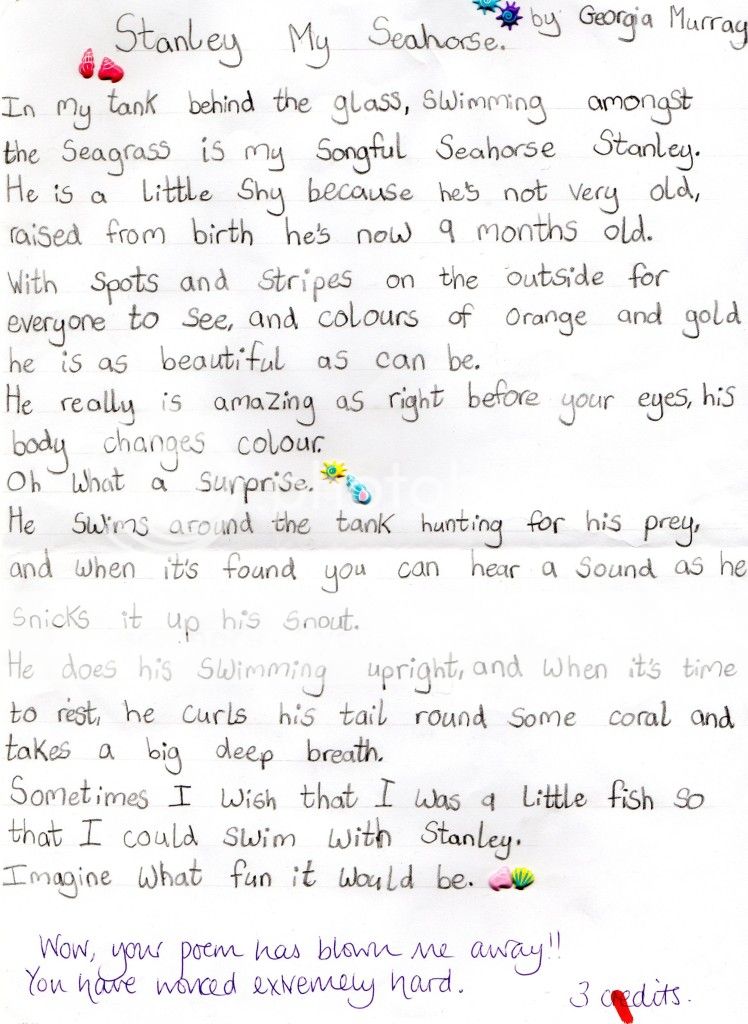 Stanley My Seahorse. by Georgia Murray
In my tank behind the glass, swimming amongst
the seagrass is my songful seahorse Stanley.
He is a little shy because he's not very old,
raised from birth he's now 9 months old.
With spots and stripes on the outside for
everyone to see, and colours of orange and gold
he is as beautiful as can be.
He really is amazing as right before your eyes, his
body changes colour.
Oh what a surprise.
He swims around the tank hunting for his prey,
and when it's found you can hear a sound as he
snicks it up his snout.
He does his swimming upright, and when it's time
to rest, he curls his tail round some coral and
takes a big deep breath.
Sometimes I wish that I was a little fish so
that I could swim with Stanley.
Imagine what fun it would be.
Wow, your poem has blown me away!!
You have worked extremely hard.
3 credits.